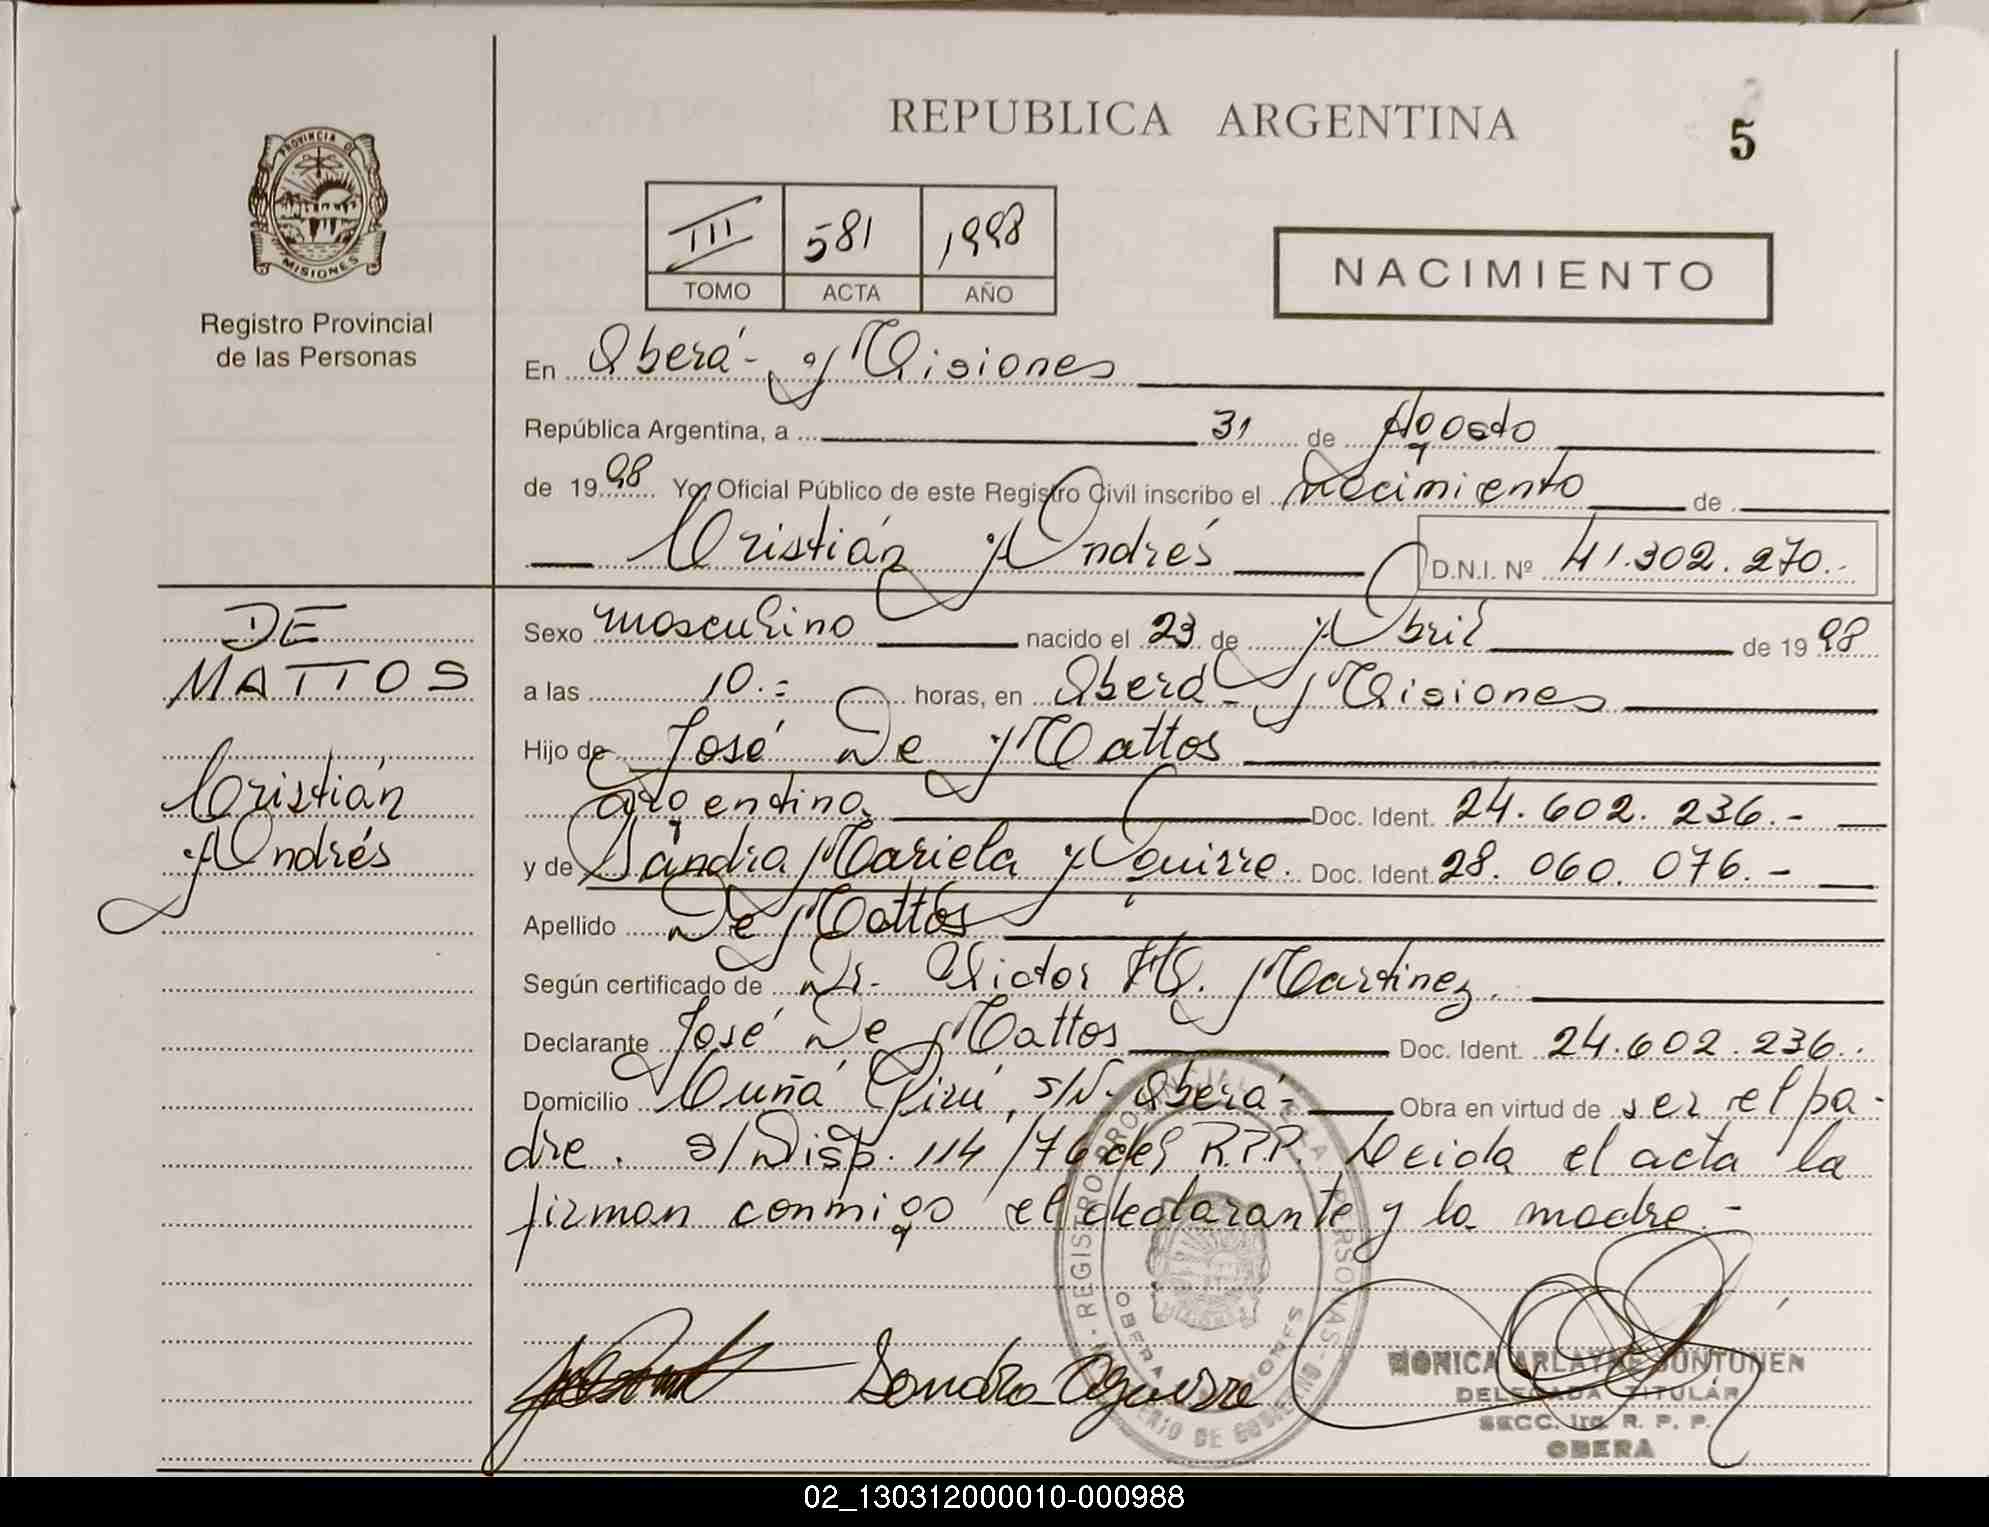 REPUBLICA ARGENTINA
5
PROVINCIA DE
MISIONES
Registro Provincial
de las Personas
III 581 1998
TOMO ACTA AÑO
NACIMIENTO
En Oberá - Misiones
República Argentina, a 31 de Agosto
de 19 98 Yo, Oficial Público de este Registro Civil inscribo el nacimiento de
Cristián Andrés D.N.I. Nº 41.302.270.-
DE
MATTOS
Cristián
Andrés
Sexo masculino nacido el 23 de Abril de 19 98
a las 10.= horas, en Oberá - Misiones
Hijo de José De Mattos
argentino Doc. Ident. 24.602.236.-
y de Sandra Mariela Aguirre. Doc. Ident. 28.060.076.-
Apellido De Mattos
Según certificado de Dr. Victor H. Martinez.
Declarante José De Mattos Doc. Ident. 24.602.236.
Domicilio Cuñá Pirú, s/N- Oberá- Obra en virtud de ser el pa-
dre. s/Disp. 114/76 del R.P.P. Leida el acta la
firman conmigo el declarante y la madre.-
REGISTRO PROVINCIAL DE LAS PERSONAS
OBERA MISIONES
MINISTERIO DE GOBIERNO
Sandra Aguirre
MONICA ARLAYNE JUNTUNEN
DELEGADA TITULAR
SECC. 1ra. R. P. P.
OBERA
02_130312000010-000988